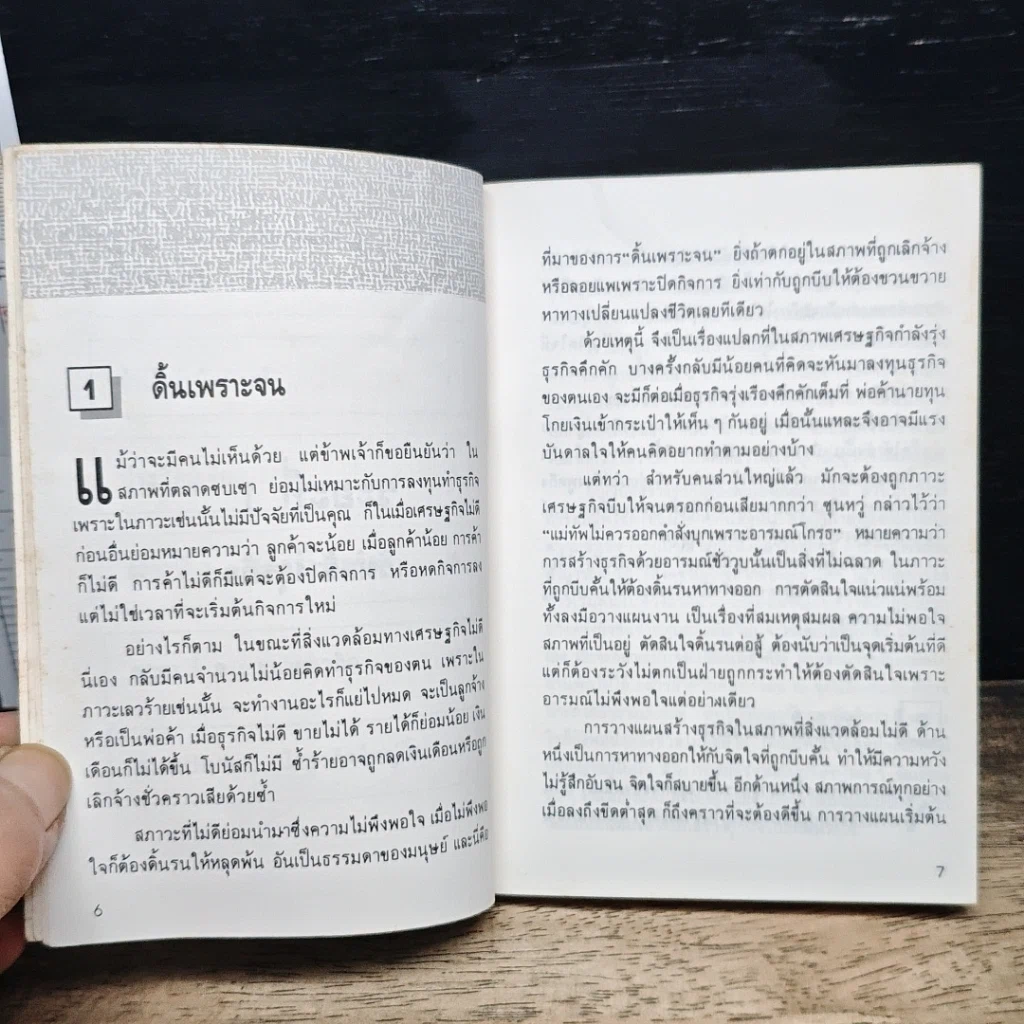 1 ดิ้นเพราะจน
แม้ว่าจะมีคนไม่เห็นด้วย แต่ข้าพเจ้าก็ขอยืนยันว่า ใน
สภาพที่ตลาดซบเซา ย่อมไม่เหมาะกับการลงทุนทำธุรกิจ
เพราะในภาวะเช่นนั้นไม่มีปัจจัยที่เป็นคุณ ก็ในเมื่อเศรษฐกิจไม่ดี
ก่อนอื่นย่อมหมายความว่า ลูกค้าจะน้อย เมื่อลูกค้าน้อย การค้า
ก็ไม่ดี การค้าไม่ดีก็มีแต่จะต้องปิดกิจการ หรือหดกิจการลง
แต่ไม่ใช่เวลาที่จะเริ่มต้นกิจการใหม่
อย่างไรก็ตาม ในขณะที่สิ่งแวดล้อมทางเศรษฐกิจไม่ดี
นี่เอง กลับมีคนจำนวนไม่น้อยคิดทำธุรกิจของตน เพราะใน
ภาวะเลวร้ายเช่นนั้น จะทำงานอะไรก็แย่ไปหมด จะเป็นลูกจ้าง
หรือเป็นพ่อค้า เมื่อธุรกิจไม่ดี ขายไม่ได้ รายได้ก็ย่อมน้อย เงิน
เดือนก็ไม่ได้ขึ้น โบนัสก็ไม่มี ซ้ำร้ายอาจถูกลดเงินเดือนหรือถูก
เลิกจ้างชั่วคราวเสียด้วยซ้ำ
สภาวะที่ไม่ดีย่อมนำมาซึ่งความไม่พึงพอใจ เมื่อไม่พึงพอ
ใจก็ต้องดิ้นรนให้หลุดพ้น อันเป็นธรรมดาของมนุษย์ และนี่คือ
6
ที่มาของการ“ดิ้นเพราะจน” ยิ่งถ้าตกอยู่ในสภาพที่ถูกเลิกจ้าง
หรือลอยแพเพราะปิดกิจการ ยิ่งเท่ากับถูกบีบให้ต้องขวนขวาย
หาทางเปลี่ยนแปลงชีวิตเลยทีเดียว
ด้วยเหตุนี้ จึงเป็นเรื่องแปลกที่ในสภาพเศรษฐกิจกำลังรุ่ง
ธุรกิจคึกคัก บางครั้งกลับมีน้อยคนที่คิดจะหันมาลงทุนธุรกิจ
ของตนเอง จะมีก็ต่อเมื่อธุรกิจรุ่งเรืองคึกคักเต็มที่ พ่อค้านายทุน
โกยเงินเข้ากระเป๋าให้เห็น ๆ กันอยู่ เมื่อนั้นแหละจึงอาจมีแรง
บันดาลใจให้คนคิดอยากทำตามอย่างบ้าง
แต่ทว่า สำหรับคนส่วนใหญ่แล้ว มักจะต้องถูกภาวะ
เศรษฐกิจบีบให้จนตรอกก่อนเสียมากกว่า ซุนหวู่ กล่าวไว้ว่า
“แม่ทัพไม่ควรออกคำสั่งบุกเพราะอารมณ์โกรธ” หมายความว่า
การสร้างธุรกิจด้วยอารมณ์ชั่ววูบนั้นเป็นสิ่งที่ไม่ฉลาด ในภาวะ
ที่ถูกบีบคั้นให้ต้องดิ้นรนหาทางออก การตัดสินใจแน่วแน่พร้อม
ทั้งลงมือวางแผนงาน เป็นเรื่องที่สมเหตุสมผล ความไม่พอใจ
สภาพที่เป็นอยู่ ตัดสินใจดิ้นรนต่อสู้ ต้องนับว่าเป็นจุดเริ่มต้นที่ดี
แต่ก็ต้องระวังไม่ตกเป็นฝ่ายถูกกระทำให้ต้องตัดสินใจเพราะ
อารมณ์ไม่พึงพอใจแต่อย่างเดียว
การวางแผนสร้างธุรกิจในสภาพที่สิ่งแวดล้อมไม่ดี ด้าน
หนึ่งเป็นการหาทางออกให้กับจิตใจที่ถูกบีบคั้น ทำให้มีความหวัง
ไม่รู้สึกอับจน จิตใจก็สบายขึ้น อีกด้านหนึ่ง สภาพการณ์ทุกอย่าง
เมื่อลงถึงขีดต่ำสุด ก็ถึงคราวที่จะต้องดีขึ้น การวางแผนเริ่มต้น
7